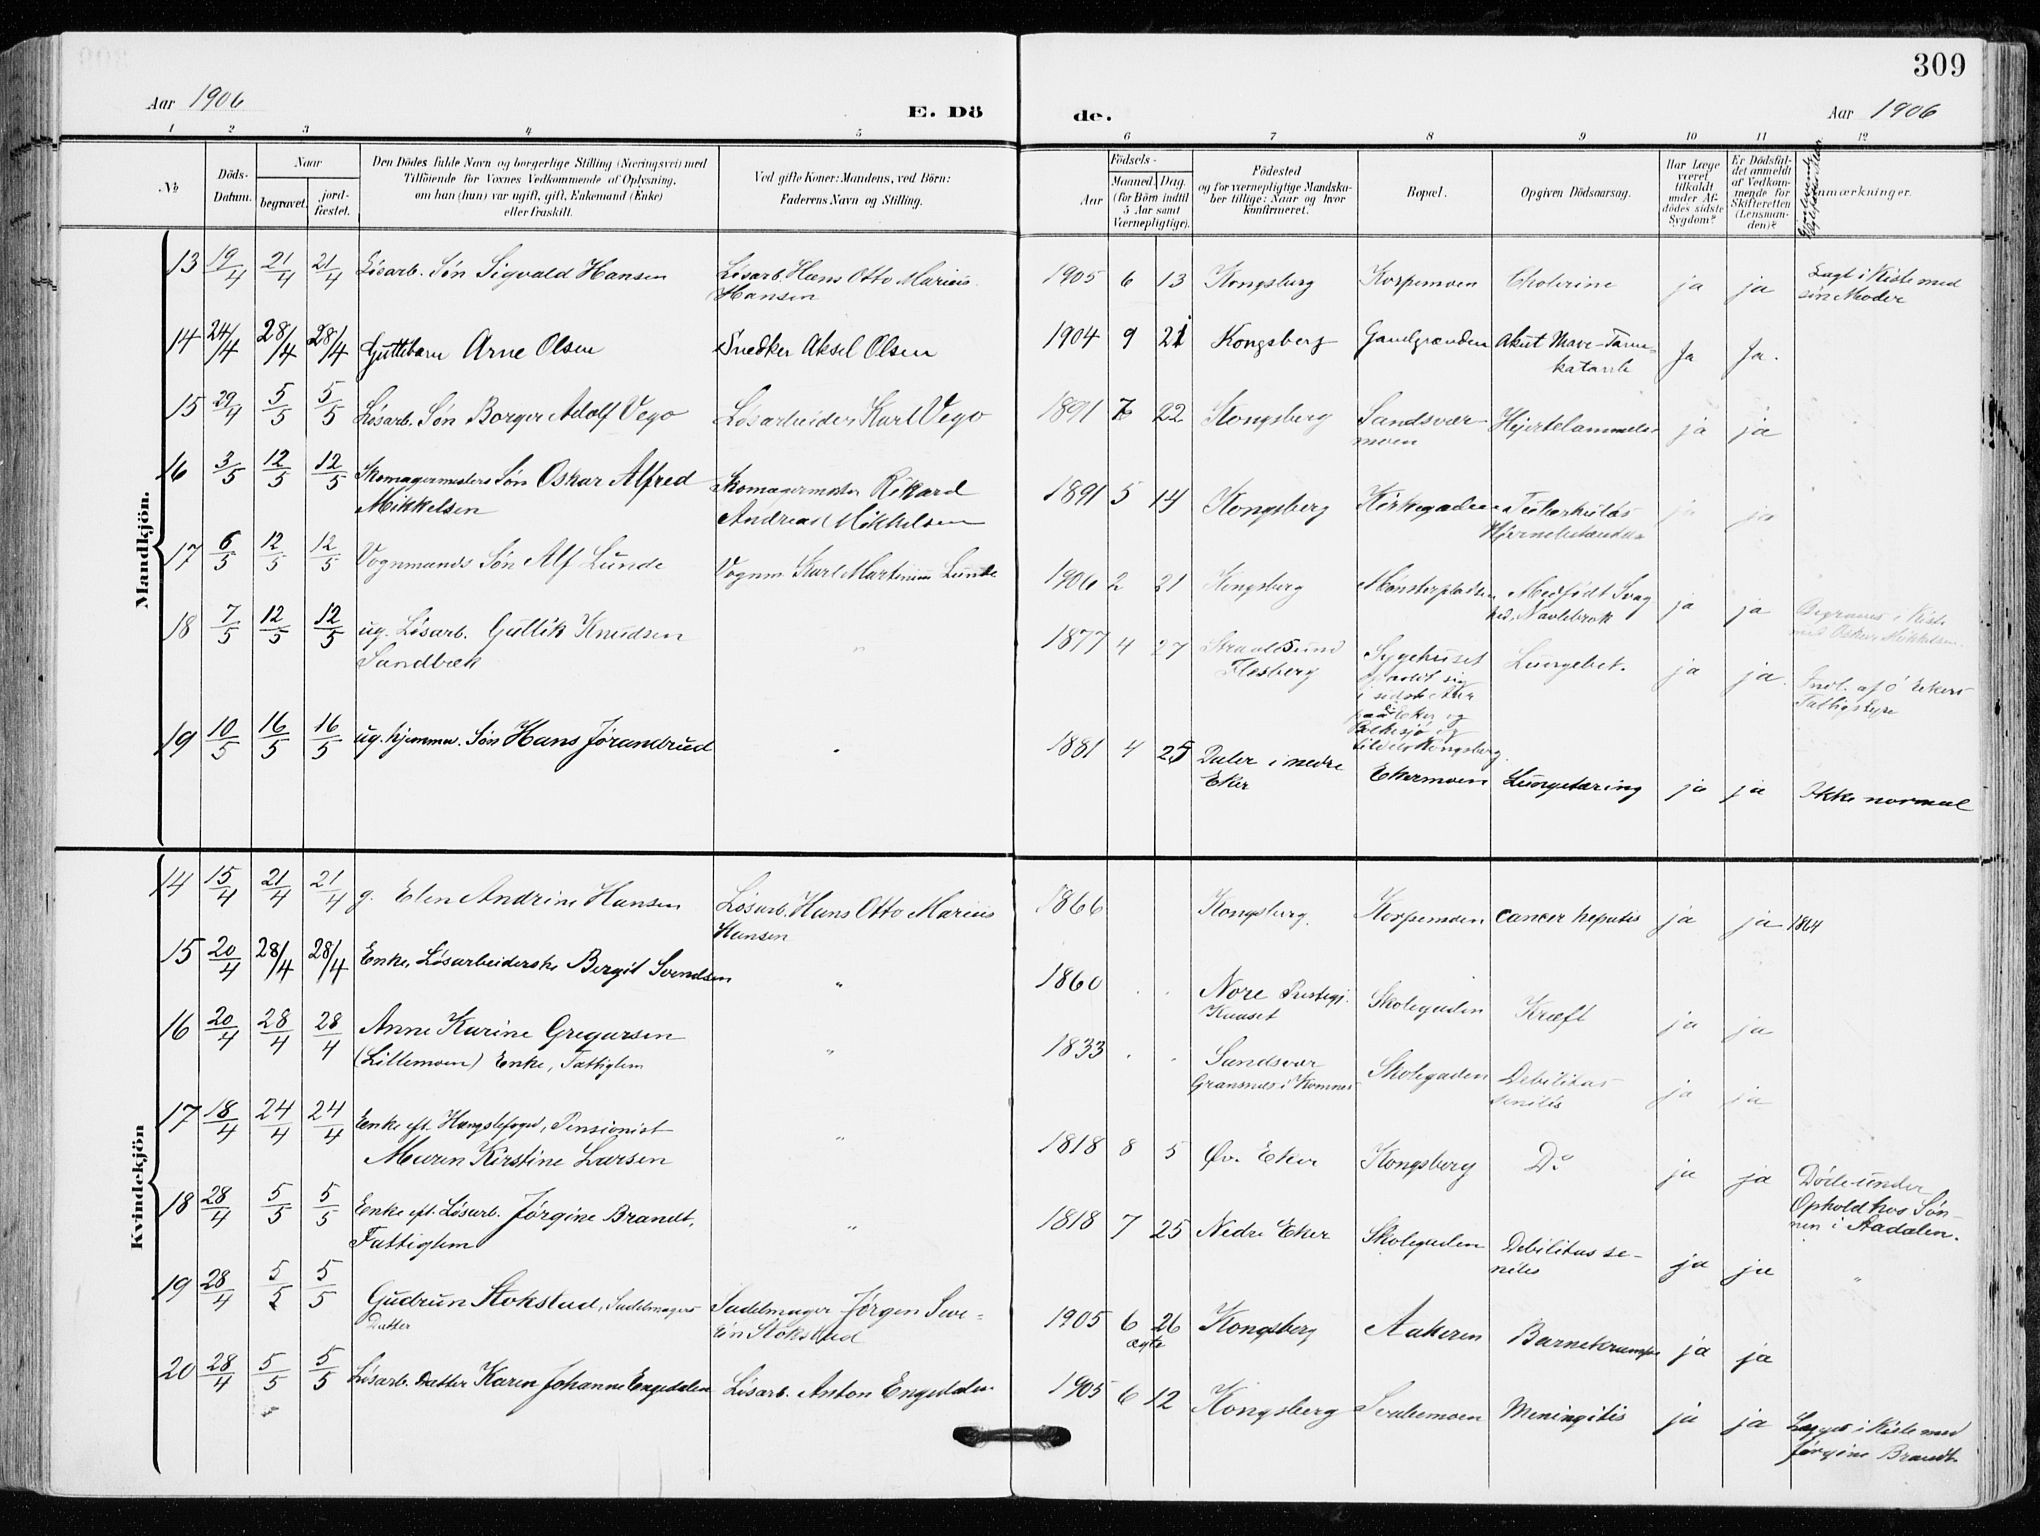 309
Aar 1906
E. Dö
de.
Aar 1906
1 2 3 4 5 6 7 8 9 10 11 12
№
Döds-
Datum.
Naar
begravet.
jord-
fæstet.
Den Dödes fulde Navn og borgerlige Stilling (Næringsvei) med
Tilföiende for Voxnes Vedkommende af Oplysning,
om han (hun) var ugift, gift, Enkemand (Enke)
eller fraskilt.
Ved gifte Koner: Mandens, ved Börn:
Faderens Navn og Stilling.
Födsels-
Aar
Maaned.
Dag.
(for Börn indtil
5 Aar samt
Værnepligtige).
Födested
og for værnepligtige Mandska-
ber tillige: Naar og hvor
konfirmeret.
Bopæl.
Opgiven Dödsaarsag.
Har Læge
været
tilkaldt
under Af-
dödes sidste
Sygdom?
Er Dödsfal-
det anmeldt
af Vedkom-
mende for
Skifteretten
(Lensman-
den)?
Anmærkninger.
Mandkjön.
13 19/4 21/4 21/4 Løsarb. Søn Sigvald Hansen Løsarb. Hans Otto Marius
Hansen
1905 6 13 Kongsberg Korpemoen Cholerine ja ja Lagt i Kiste med
sin Moder
14 24/4 28/4 28/4 Guttebarn Arne Olsen Snedker Aksel Olsen
1904 9 21 Kongsberg Gamlgrænden Akut Mave-Tarm-
katarrh Ja Ja.
15 29/4 5/5 5/5 Løsarb. Søn Borger Adolf Vego Løsarbeider Karl Vego
1891 7 22 Kongsberg Sandsvær-
moen Hjertelammelse ja ja
16 3/5 12/5 12/5 Skomagermesters Søn Oskar Alfred
Mikkelsen Skomagermester Rikard
Andreas Mikkelsen
1891 5 14 Kongsberg Kirkegaden Tuberkuløs
Hjernebetændelse ja ja
17 6/5 12/5 12/5 Vognmands Søn Alf Lunde Vognm. Karl Martinius Lunde
1906 2 21 Kongsberg Mønsterpladsen Medfødt Svag
hed, Navlebrok ja ja Begraves i Kiste
med Oskar Mikkelsen.
18 7/5 12/5 12/5 ug. Løsarb. Gullik Knudsen
Sandbæk "
1877 4 27
Flesberg Sygehuset
i sidste
og
Kongsberg Lungebet. ja ja. Indl. af Ø. Ekers
Fattigstyre
19 10/5 16/5 16/5 ug. hjemmev. Søn Hans Jørandrud "
1881 4 25 Daler i nedre
Eker Ekermoen Lungetæring ja ja Ikke normal
Kvindekjön
14 15/4 21/4 21/4 g. Elen Andrine Hansen Løsarb. Hans Otto Marius
Hansen
1866 Kongsberg. Korpemoen Cancer hepatis ja ja 1864
15 20/4 28/4 28/4 Enke, Løsarbeiderske Bergit Svendsen "
1860 . . Nore Prestegj.
Skolegaden Kræft ja ja
16 20/4 28/4 28/4 Anne Karine Gregersen
(Lillemoen) Enke, Fattiglem "
1833 . . Sandsvær
Skolegaden Debilitas
senilis ja ja
17 18/4 24/4 24/4 Enke eft. Hængslefoged, Pensionist
Maren Kirstine Larsen "
1818 8 5 Øv. Eker Kongsberg Do ja ja Døde under
Ophold hos Søn-
nen i Aadalen.
18 28/4 5/5 5/5 Enke eft. Løsarb. Jørgine Brandt,
Fattiglem "
1818 7 25 Nedre Eker Skolegaden Debilitas se-
nilis ja ja "
19 28/4 5/5 5/5 Gudrun Stokstad, Sadelmagers
Datter Sadelmager Jørgen Seve-
rin Stokstad
1905 6 26
ægte Kongsberg Aakeren Barnekrampe ja ja
20 28/4 5/5 5/5 Løsarb. Datter Karen Johanne Engedalen Løsarb. Anton Engedalen
1905 6 12 Kongsberg Svakemoen Meningitis ja ja Lagt i Kiste med
Jørgine Brandt